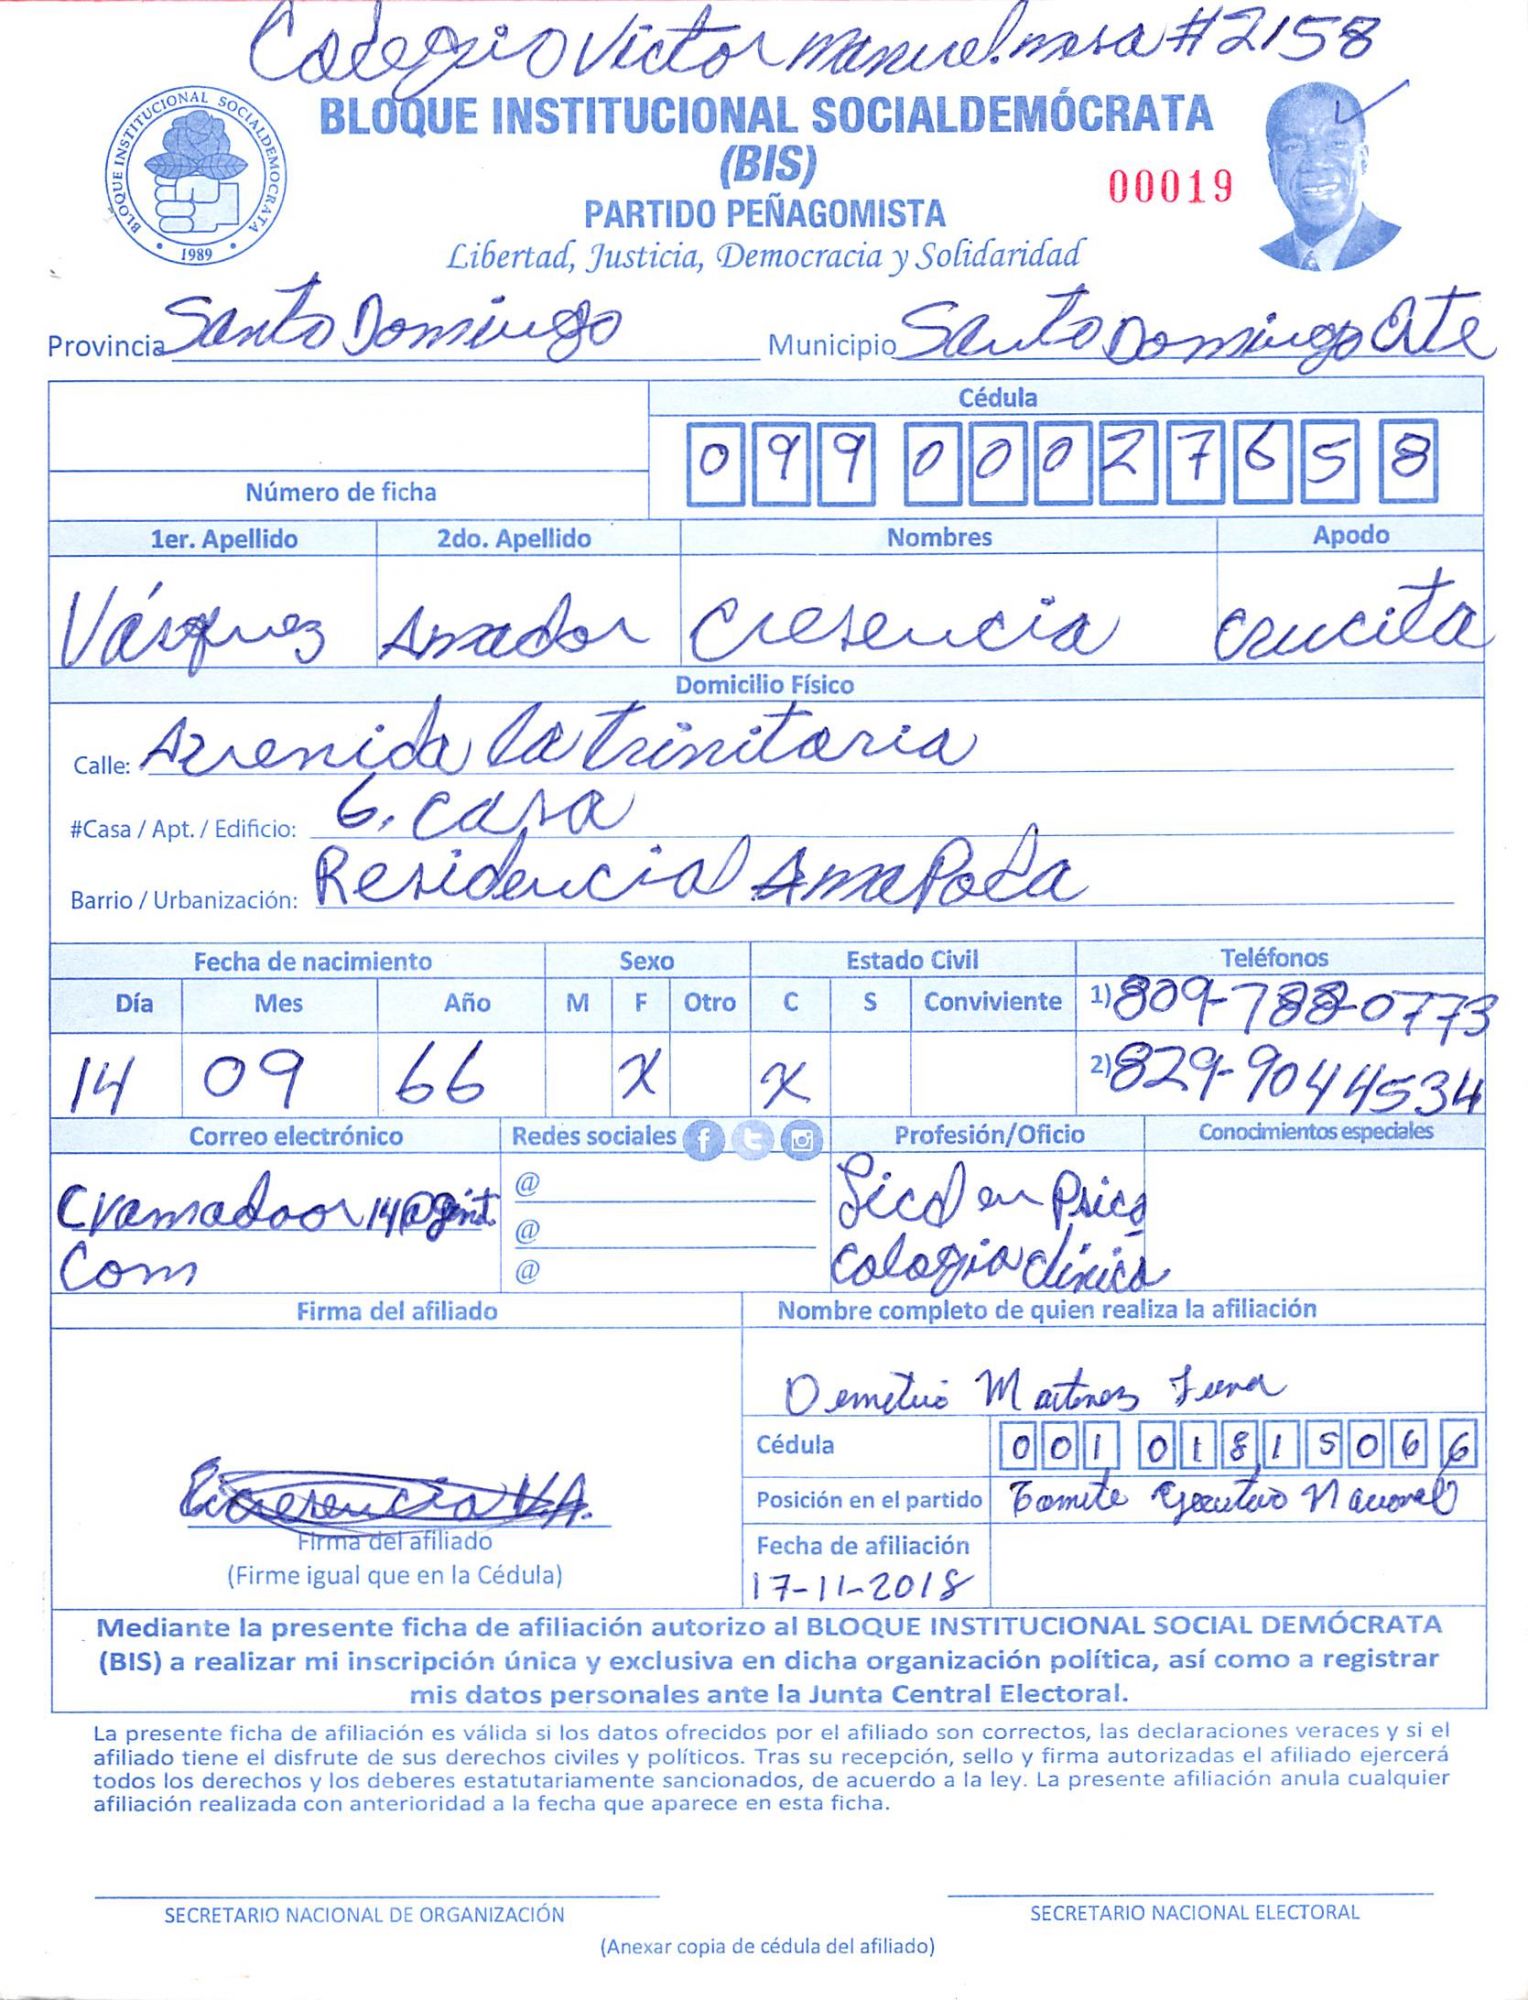 Colegio Victor manuel. mesa #2158
BLOQUE INSTITUCIONAL SOCIALDEMÓCRATA
(BIS)
PARTIDO PEÑAGOMISTA
Libertad, Justicia, Democracia y Solidaridad
00019
BLOQUE INSTITUCIONAL SOCIALDEMOCRATA
1989
Provincia Santo Domingo Municipio Santo Domingo Este
Cédula
099 0002765 8
Número de ficha
1er. Apellido 2do. Apellido Nombres Apodo
Vásquez Amador Cresencia Crucita
Domicilio Físico
Calle: Avenida la trinitaria
#Casa / Apt. / Edificio: 6. casa
Barrio / Urbanización: Residencial AmaPola
Fecha de nacimiento Sexo Estado Civil Teléfonos
Día Mes Año M F Otro C S Conviviente 1) 809-788-0773
14 09 66 X X 2) 829-9044534
Correo electrónico Redes sociales Profesión/Oficio Conocimientos especiales
Cvamadoor14@gmil. @ Licd en Psico
@
Com @ cologia clínica
Firma del afiliado Nombre completo de quien realiza la afiliación
Demetrio Martinez
Cédula 001 0181506 6
Cresencia V.A. Posición en el partido Comite Ejecutivo Nacional
Firma del afiliado Fecha de afiliación
(Firme igual que en la Cédula) 17-11-2018
Mediante la presente ficha de afiliación autorizo al BLOQUE INSTITUCIONAL SOCIAL DEMÓCRATA
(BIS) a realizar mi inscripción única y exclusiva en dicha organización política, así como a registrar
mis datos personales ante la Junta Central Electoral.
La presente ficha de afiliación es válida si los datos ofrecidos por el afiliado son correctos, las declaraciones veraces y si el
afiliado tiene el disfrute de sus derechos civiles y políticos. Tras su recepción, sello y firma autorizadas el afiliado ejercerá
todos los derechos y los deberes estatutariamente sancionados, de acuerdo a la ley. La presente afiliación anula cualquier
afiliación realizada con anterioridad a la fecha que aparece en esta ficha.
SECRETARIO NACIONAL DE ORGANIZACIÓN SECRETARIO NACIONAL ELECTORAL
(Anexar copia de cédula del afiliado)